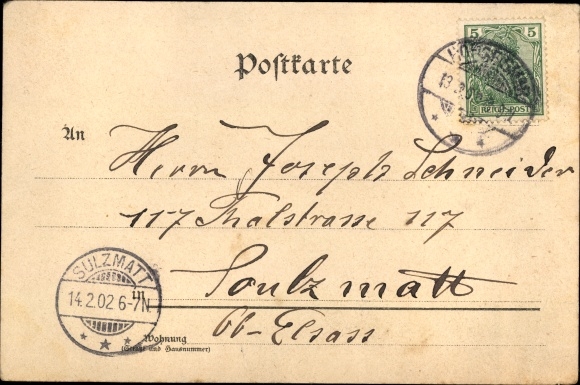 Postkarte
5 5
REICHSPOST
13
An
Herrn Joseph Schneider
117 Thalstrasse 117
Soulzmatt
Ob-Elsass
SULZMATT
14.2.02 6-7N
Wohnung
(Straße und Hausnummer)